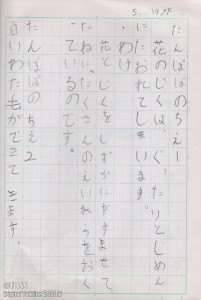 5.19月
たんぽぽのちえ1
花のじくは、ぐったりとじめん
にたおれてしまいます
わけ
花とじくをしずかに休ませて、
たねにたくさんのえいようをおく
っているのです。
たんぽぽのちえ2
白いわた毛ができてきます。
©TOSS